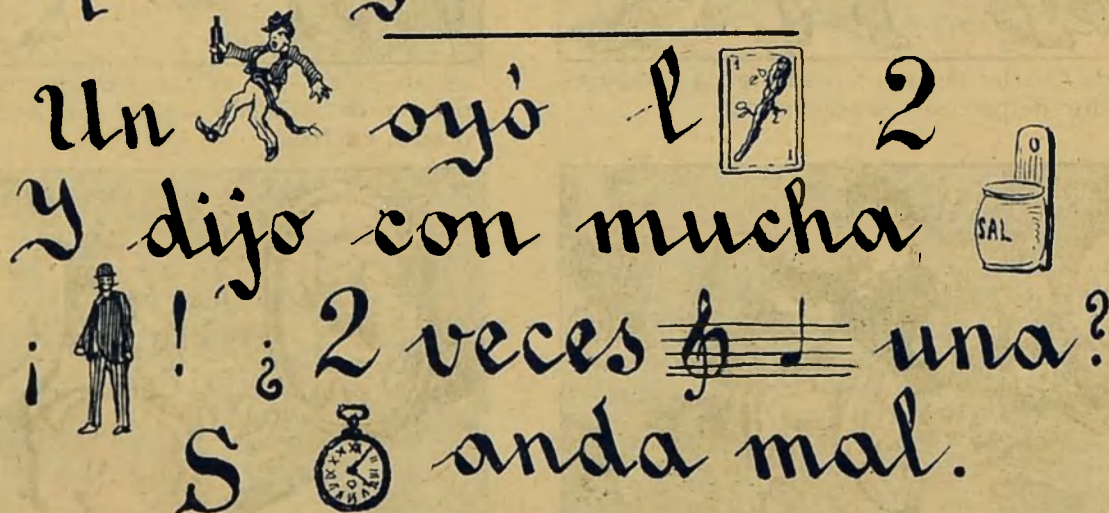 Un oyó l 2
Y dijo con mucha SAL
¡ ! ¿ 2 veces una?
S anda mal.